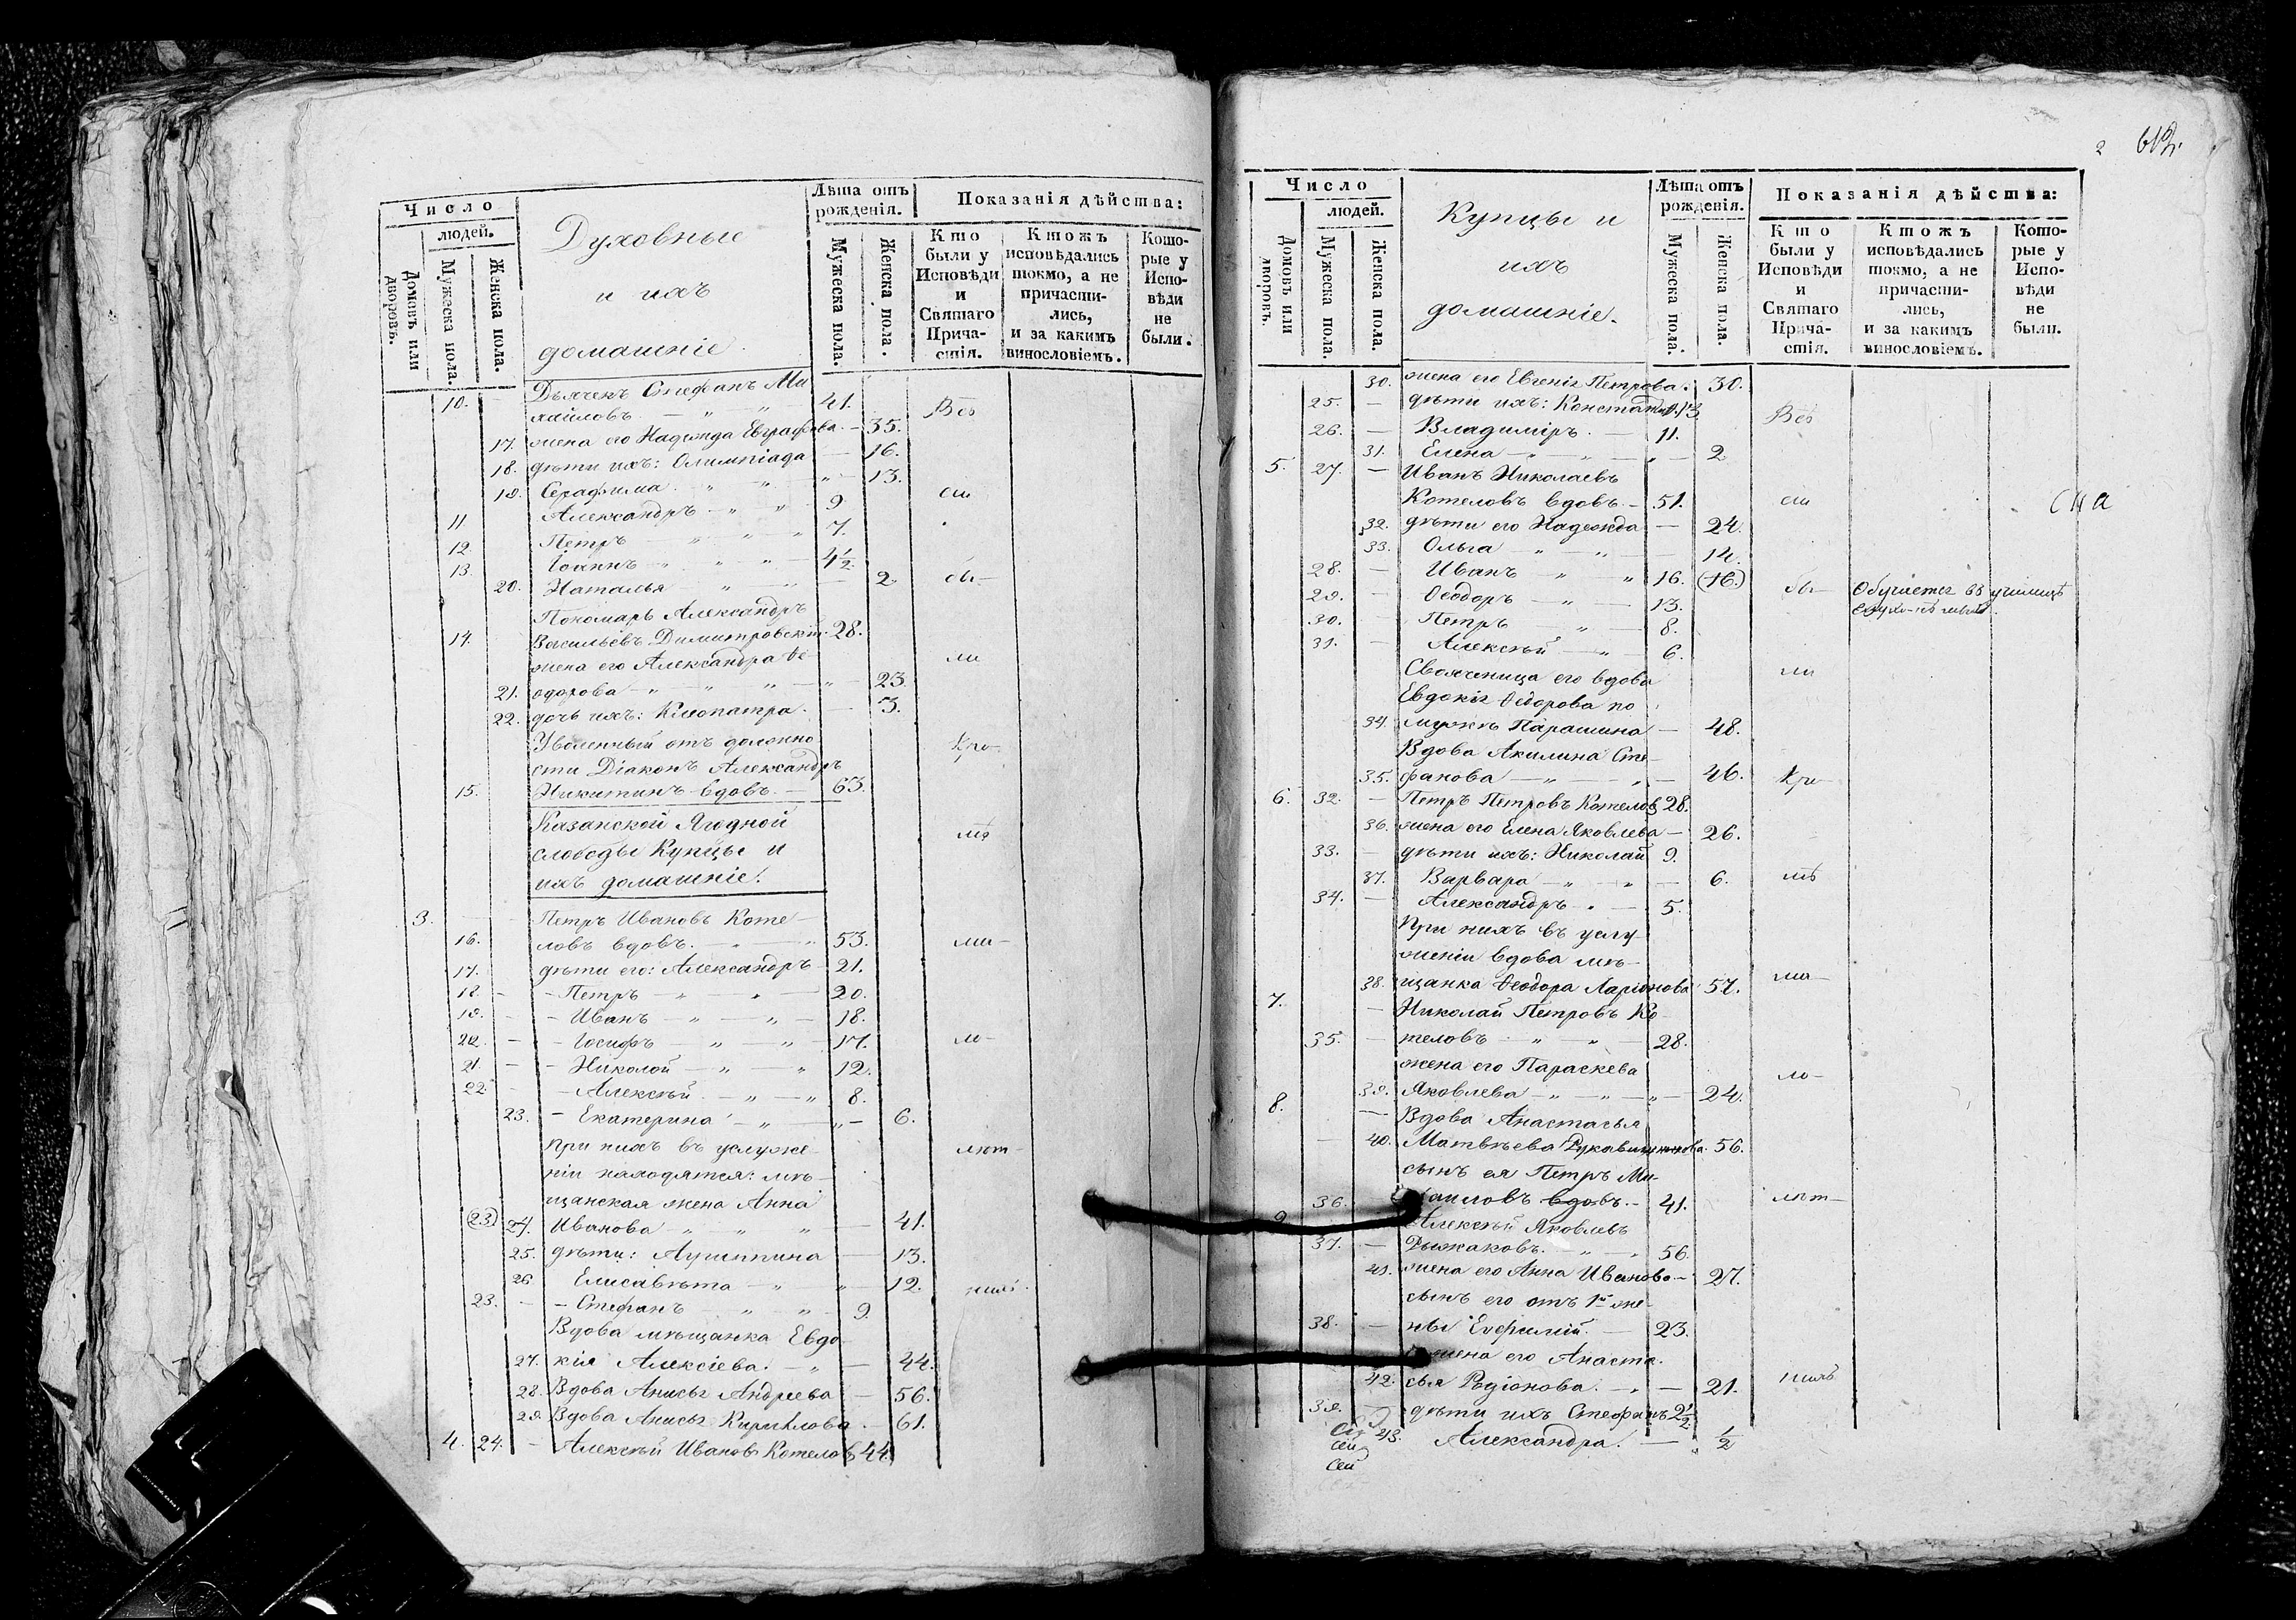 Число
людей.
Домовъ или дворовъ.
Мужеска пола.
Женска пола.
Духовные
и ихъ
домашніе.
Лѣта отъ рожденія.
Мужеска пола.
Женска пола.
Показанія дѣйства:
Кто были у Исповѣди и Святаго Причастія.
Ктожъ исповѣдались токмо, а не причастились, и за какимъ винословіемъ.
Которые у Исповѣди не были.
Дьячекъ Стефанъ Ми
10. хаиловъ 41. Всѣ
17. жена его Надежда Евграфова 35.
18. дѣти ихъ: Олимпіада 16.
19. Серафима 13.
11. Александръ 9
12. Петръ 7.
13. Іоаннъ 4½
20. Наталья 2
Пономарь Александръ
14. Васильевъ Димитровскій 28.
жена его Александра Ѳе
21. одорова 23.
22. дочь ихъ: Клеопатра 3.
Уволенный отъ должно
сти Діаконъ Александръ
15. Никитинъ вдовъ 63.
Казанской Ягодной
слободы Купцы и
ихъ домашніе.
3. Петръ Ивановъ Коте
16. ловъ вдовъ. 53.
17. дѣти его: Александръ 21.
18. Петръ 20.
19. Иванъ 18.
20. Іосифъ 17.
21. Николай 12.
22. Алексѣй 8.
23. Екатерина 6.
при нихъ въ услуже
ніи находятся: мѣ
щанская жена Анна
(23.) 24. Иванова 41.
25. дѣти: Агриппина 13.
26 Елисавѣта 12.
23. Стефанъ 9.
Вдова мѣщанка Евдо
27. кія Алексіева. 44.
28. Вдова Анисья Андреева 56.
29. Вдова Анисья Кирилова 61.
4. 24. Алексѣй Ивановъ Котеловъ 44.
Число
людей.
Домовъ или дворовъ.
Мужеска пола.
Женска пола.
Купцы и
ихъ
домашніе.
Лѣта отъ рожденія.
Мужеска пола.
Женска пола.
Показанія дѣйства:
Кто были у Исповѣди и Святаго Причастія.
Ктожъ исповѣдались токмо, а не причастились, и за какимъ винословіемъ.
Которые у Исповѣди не были.
30. жена его Евгенія Петрова. 30.
25. дѣти ихъ: Константинъ 13 Всѣ
26. Владиміръ. 11.
31. Елена 2
5. 27. Иванъ Николаевъ
Котеловъ вдовъ. 51.
32. дѣти его Надежда 24.
33. Ольга 14.
28. Иванъ 16. (16.)
29. Ѳеодоръ 13. Обучается въ училищѣ
30. Петръ 8.
31. Алексѣй 6.
Свояченица его вдова
Евдокія Ѳедорова по
34. мужѣ Парашина 48.
Вдова Акилина Сте
35. фанова 46.
6. 32. Петръ Петровъ Котеловъ 28.
36. жена его Елена Яковлева 26.
33. дѣти ихъ: Николай 9.
37. Варвара 6.
34. Александръ 5.
При нихъ въ услу
женіи вдова мѣ
38. щанка Ѳеодора Ларіонова 57.
7. Николай Петровъ Ко
35. теловъ 28.
жена его Параскева
39. Яковлева 24.
8. Вдова Анастасья
40. Матвѣева Рукавишникова 56.
сынъ ея Петръ Ми
36. хаиловъ вдовъ. 41.
9. Алексѣй Яковлевъ
37. Рыжаковъ. 56.
41. жена его Анна Иванова 27.
сынъ его отъ 1й же
38. ны Ефимій. 23.
жена его Анаста
42. сья Родіонова. 21.
39. дѣти ихъ Стефанъ 2½
43. Александра. ½